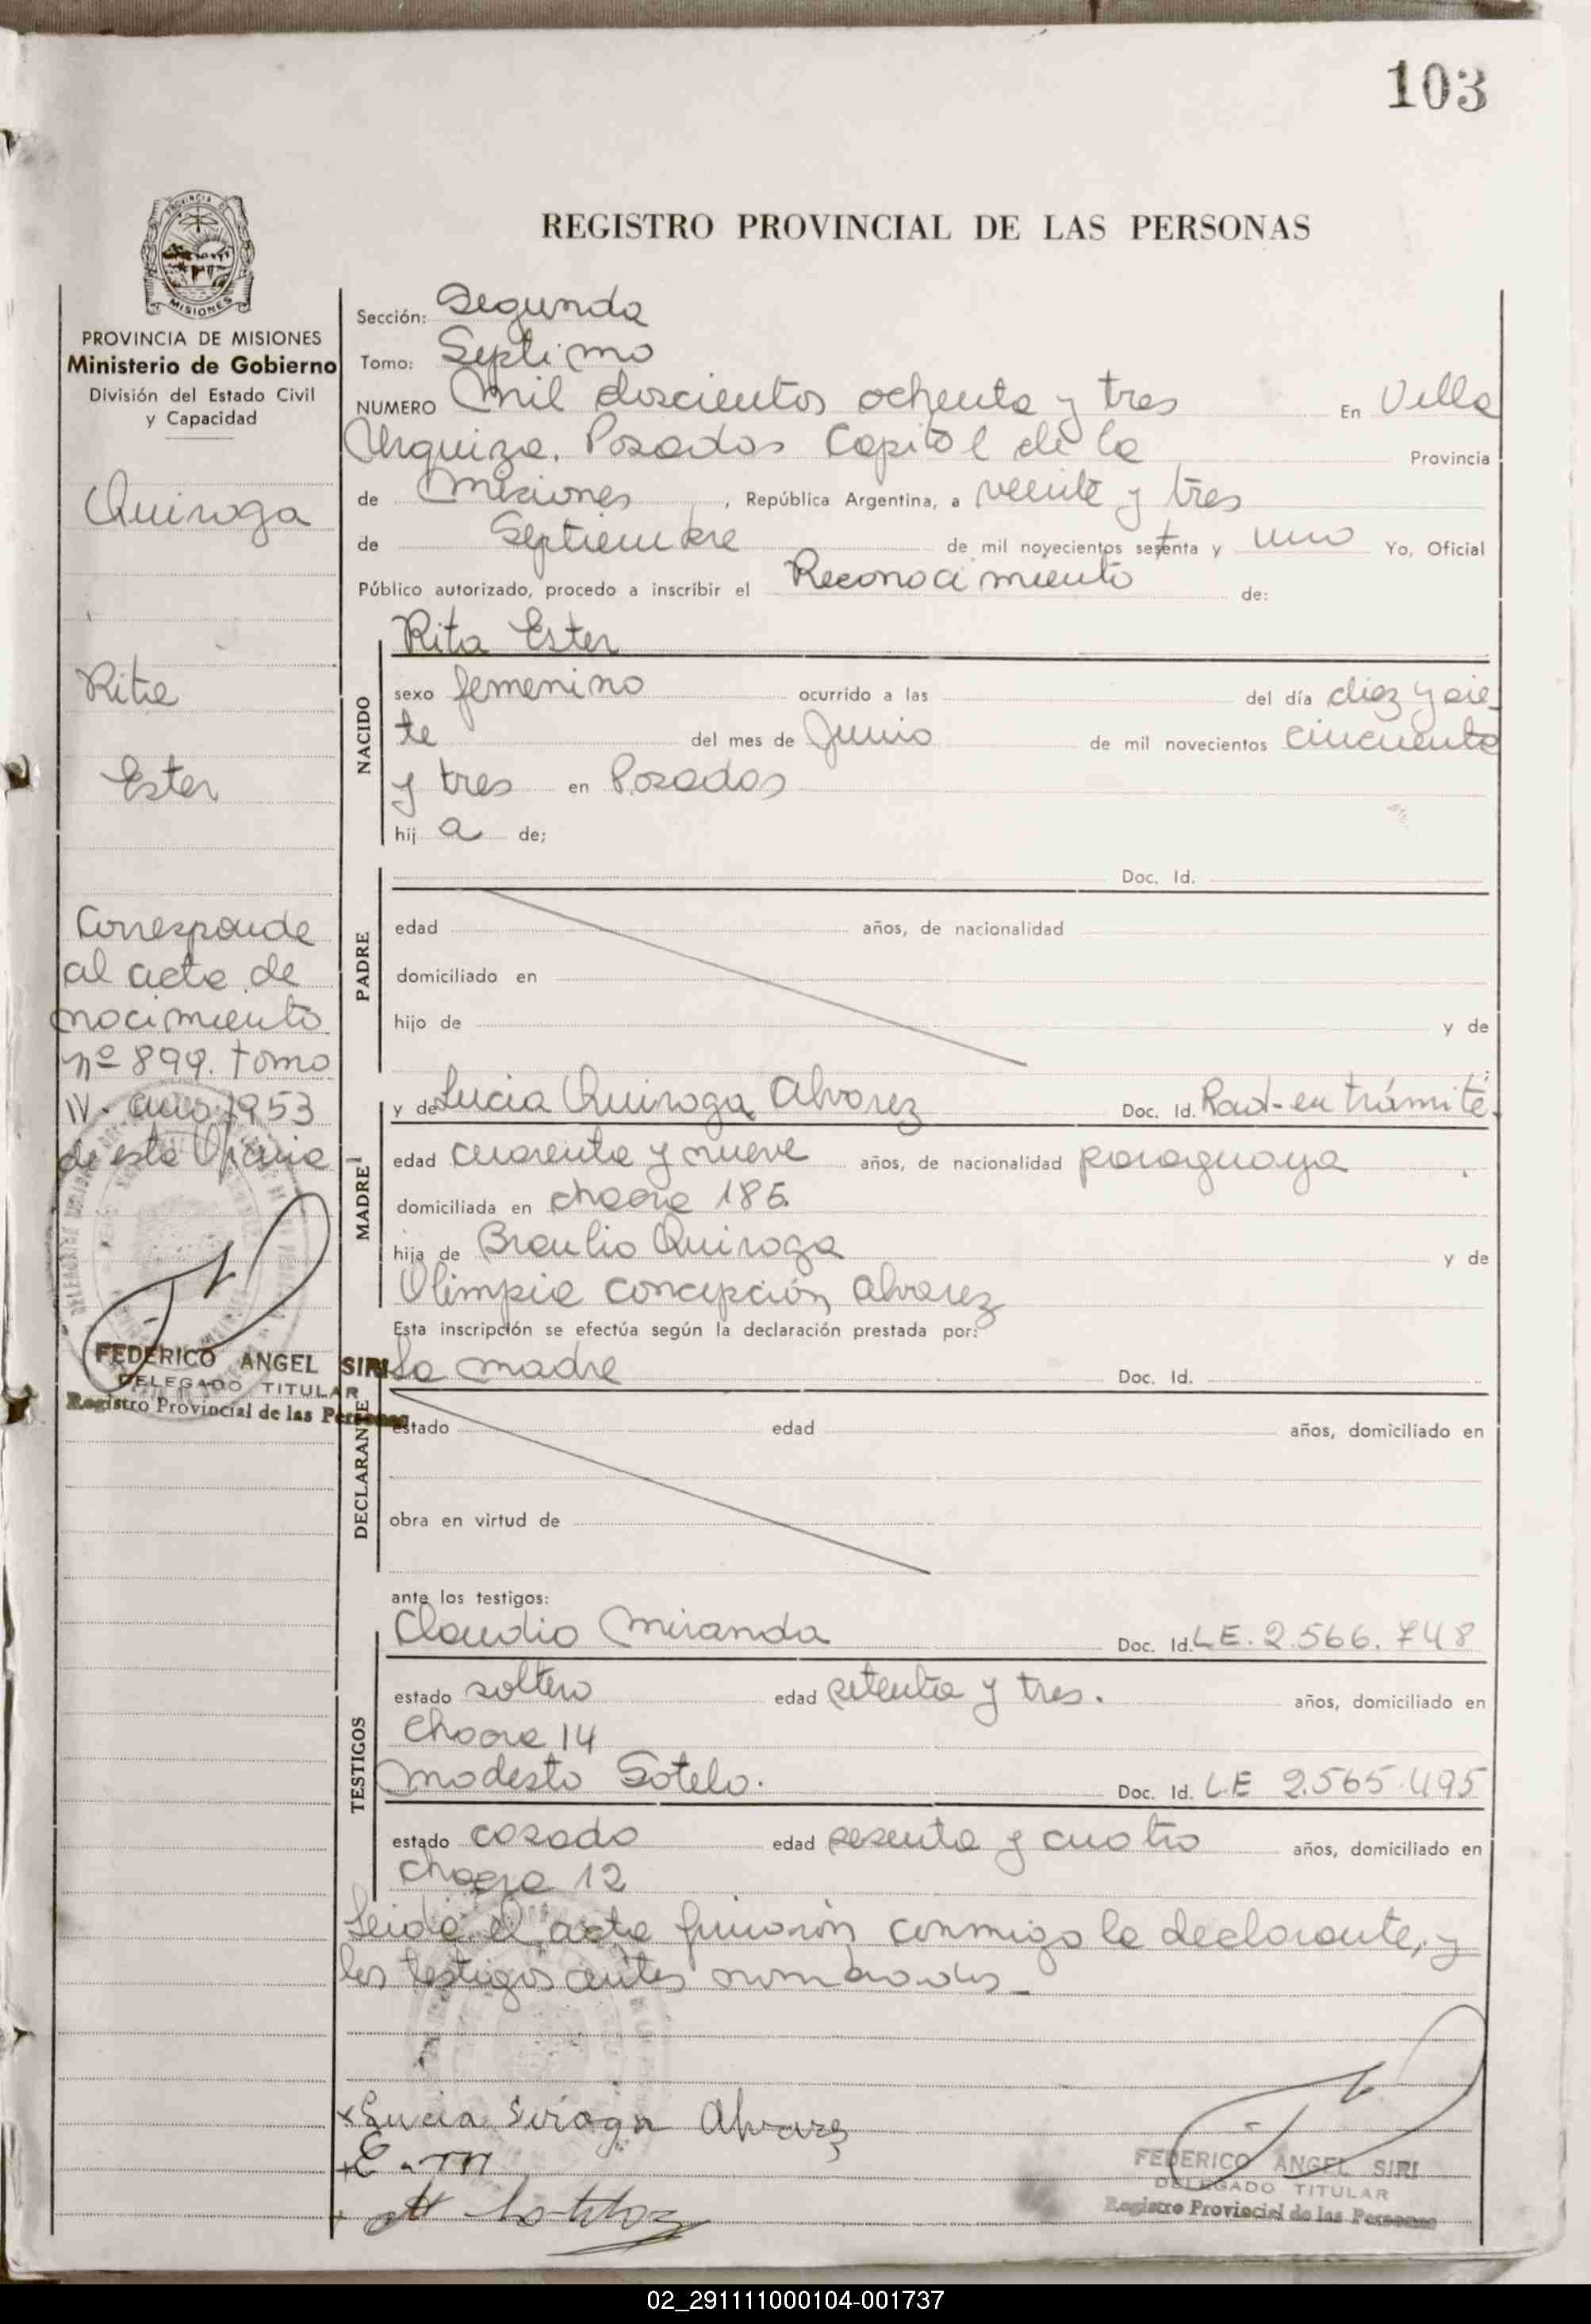 103
REGISTRO PROVINCIAL DE LAS PERSONAS
PROVINCIA DE MISIONES
MISIONES
PROVINCIA DE MISIONES
Ministerio de Gobierno
División del Estado Civil
y Capacidad
Quiroga
Rita
Ester
Corresponde
al acta de
nacimiento
nº 899. tomo
IV. año 1953
de esta Oficina
FEDERICO ANGEL SIRI
DELEGADO TITULAR
Registro Provincial de las Personas
Sección: Segunda
Tomo: Septimo
NUMERO Mil doscientos ochenta y tres En Villa
Urquiza. Posadas Capital de la Provincia
de Misiones , República Argentina, a veinte y tres
de Septiembre de mil novecientos setenta y uno Yo, Oficial
Público autorizado, procedo a inscribir el Reconocimiento de:
NACIDO
Rita Ester
sexo femenino ocurrido a las del día diez y sie-
te del mes de Junio de mil novecientos cincuenta
y tres en Posadas
hij a de;
PADRE
Doc. Id.
edad años, de nacionalidad
domiciliado en
hijo de y de
MADRE
y de Lucia Quiroga Alvarez Doc. Id. Rad-en trámite.
edad cuarenta y nueve años, de nacionalidad paraguaya
domiciliada en chacra 186
hija de Braulio Quiroga y de
Olimpia Concepción Alvarez
Esta inscripción se efectúa según la declaración prestada por:
DECLARANTE
La madre Doc. Id.
estado edad años, domiciliado en
obra en virtud de
ante los testigos:
TESTIGOS
Claudio Miranda Doc. Id. LE. 2.566.748
estado soltero edad setenta y tres. años, domiciliado en
Chacra 14
Modesto Sotelo. Doc. Id. LE 2.565.495
estado casado edad sesenta y cuatro años, domiciliado en
Chacra 12
Leida el acta firmarón conmigo la declarante, y
los testigos antes nombrados.
x Lucia Alvarez
FEDERICO ANGEL SIRI
DELEGADO TITULAR
Registro Provincial de las Personas
02_291111000104-001737